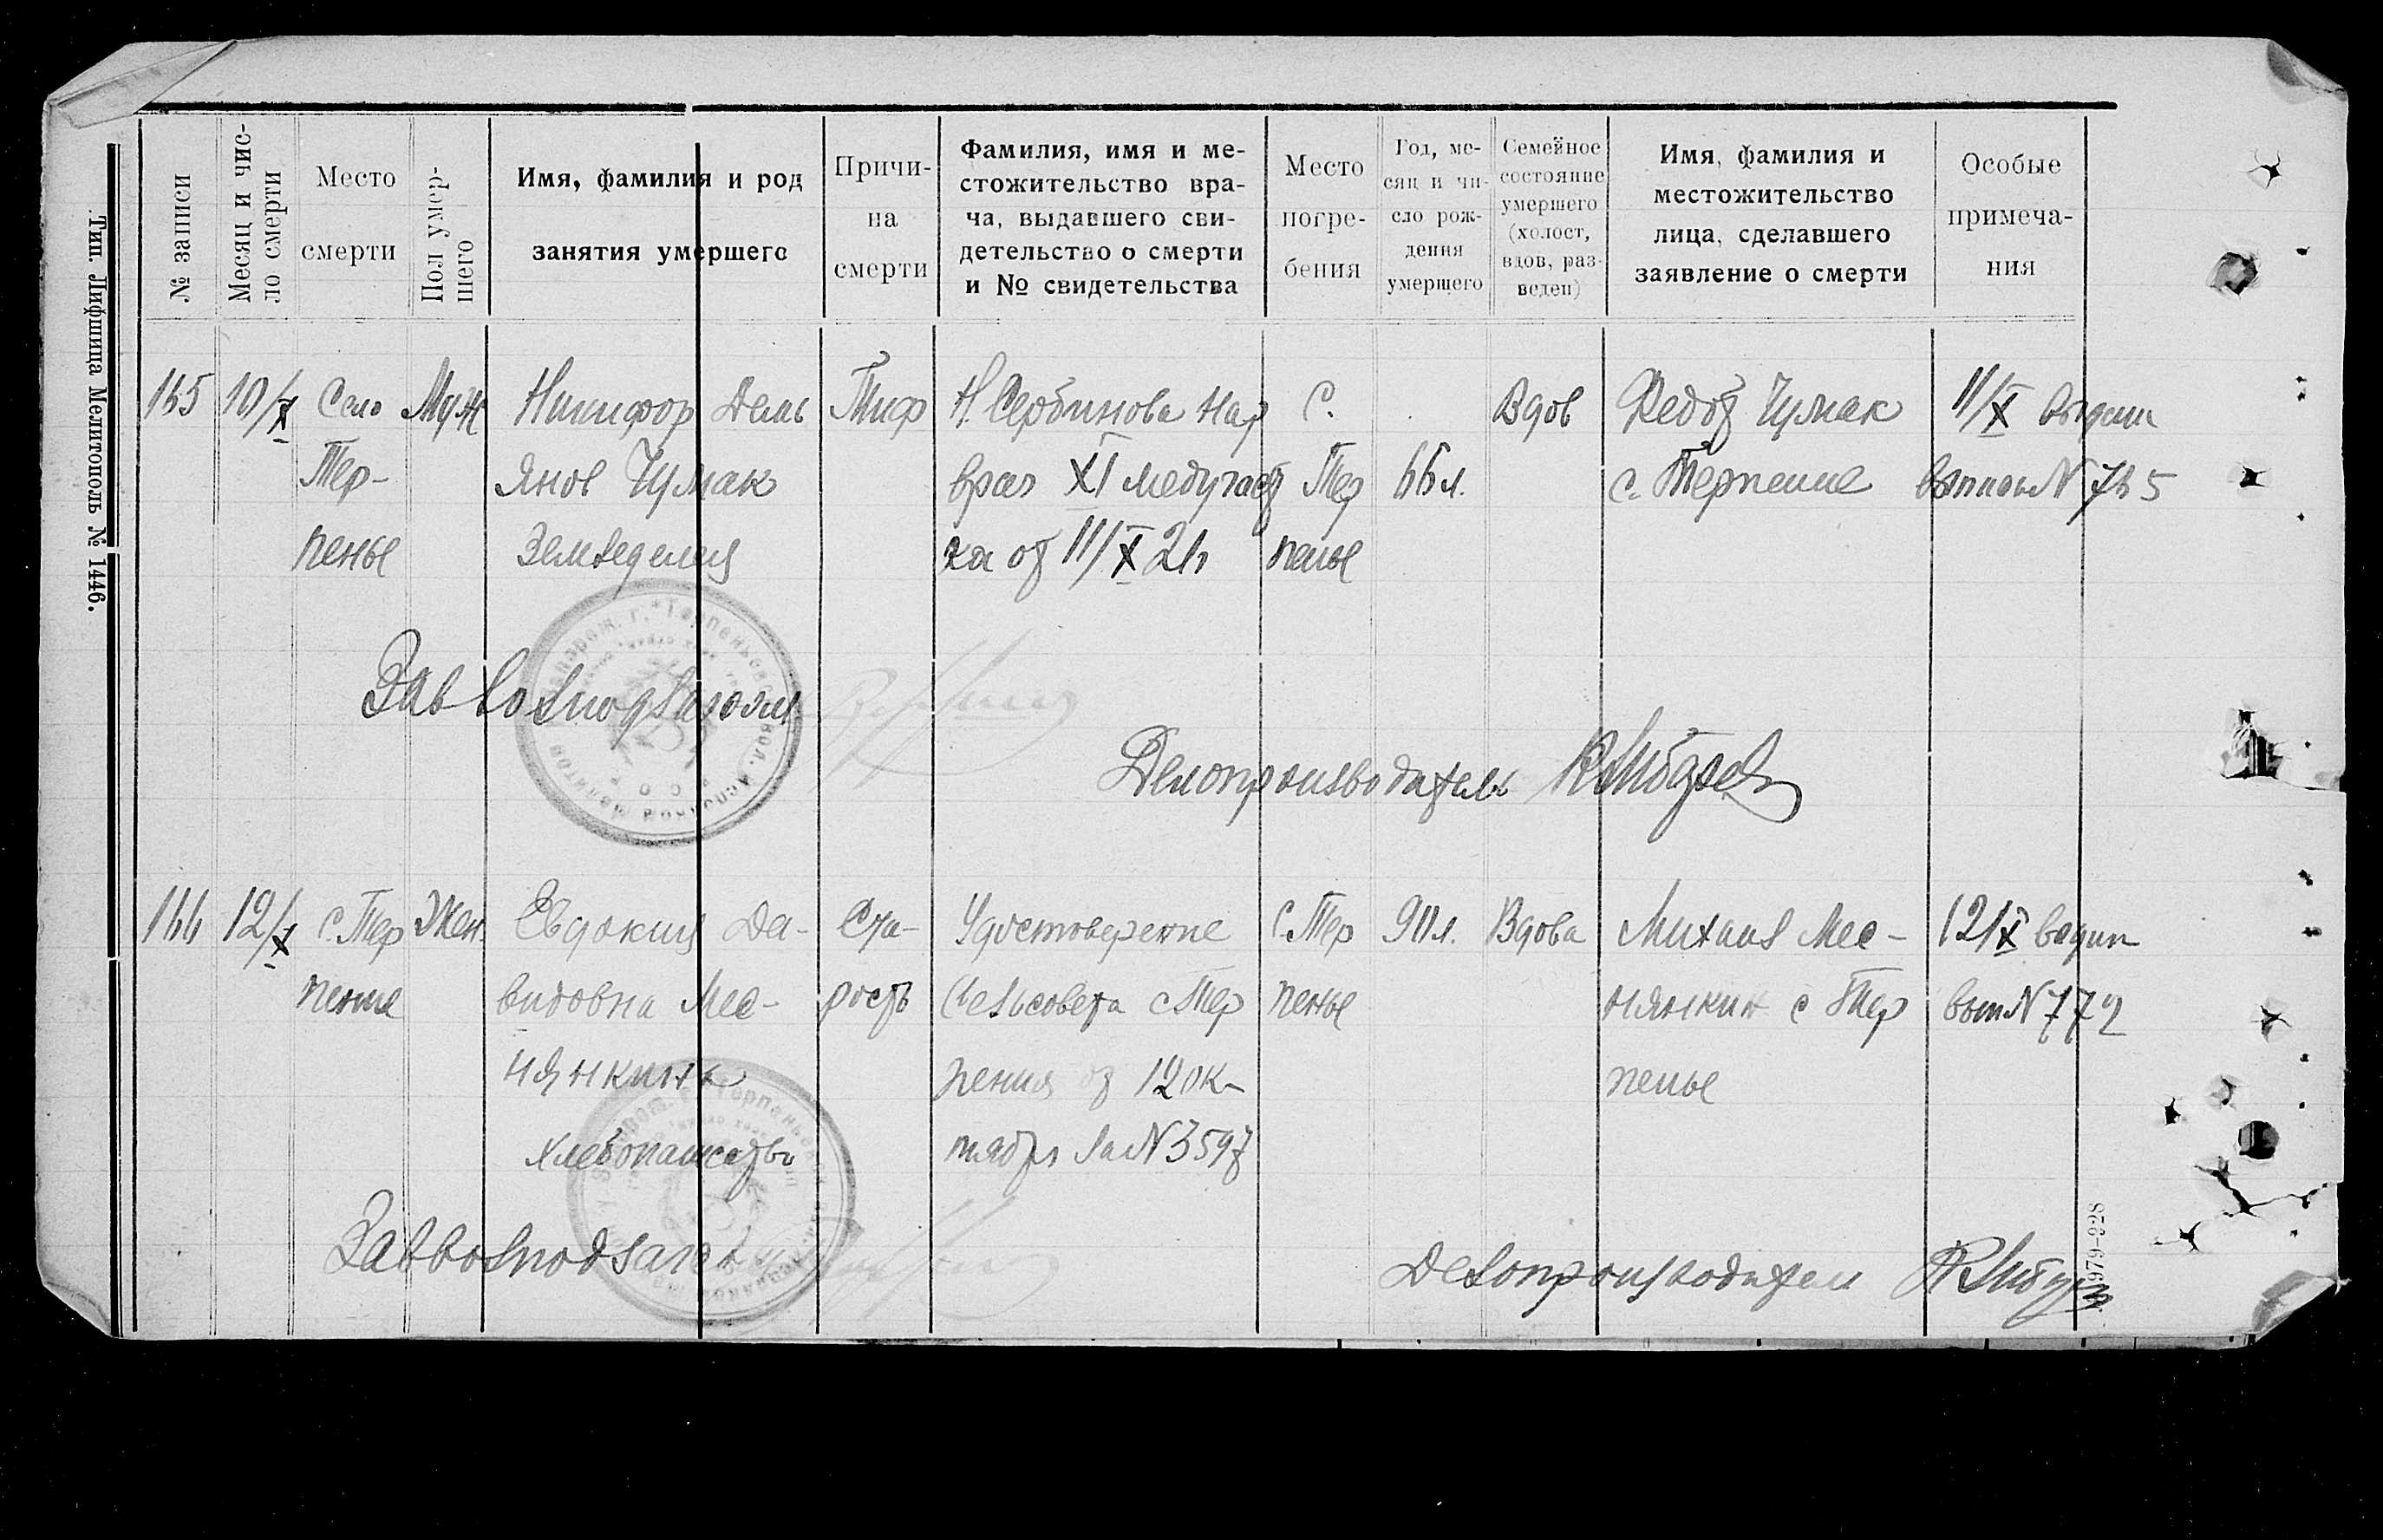 Тип. Лифшица Мелитополь № 1446.
№ записи
Месяц и чис-
ло смерти
Место
смерти
Пол умер-
шего
Имя, фамилия и род
занятия умершего
Причи-
на
смерти
Фамилия, имя и ме-
стожительство вра-
ча, выдавшего сви-
детельство о смерти
и № свидетельства
Место
погре-
бения
Год, ме-
сяц и чи-
сло рож-
дения
умершего
Семейное
состояние
умершего
(холост,
вдов, раз-
веден)
Имя, фамилия и
местожительство
лица, сделавшего
заявление о смерти
Особые
примеча-
ния
165
10/X
Село
Тер-
пенье
Муж
Никифор Демь
янов Чумак
Земледелия
Тиф
Н. Сербинова Нар
врач XI медучаст
ка от 11/X 2
С.
Тер
пенье
66 л.
Вдов
Федот Чумак
с. Терпение
11/X выдан
N 7
Делопроизводитель
166
12/X
с. Тер
пение
Жен.
Евдокия Да-
видовна Мес-
нянкина
хлебопашество
Ста-
рость
Удостоверение
Сельсовета с Тер
пения от 12 ок-
тября за N 3597
С. Тер
пенье
90 л.
Вдова
Михаил Мес-
нянкин с Тер
пенье
12/X
вып N 772
Делопроизводител
1979-228